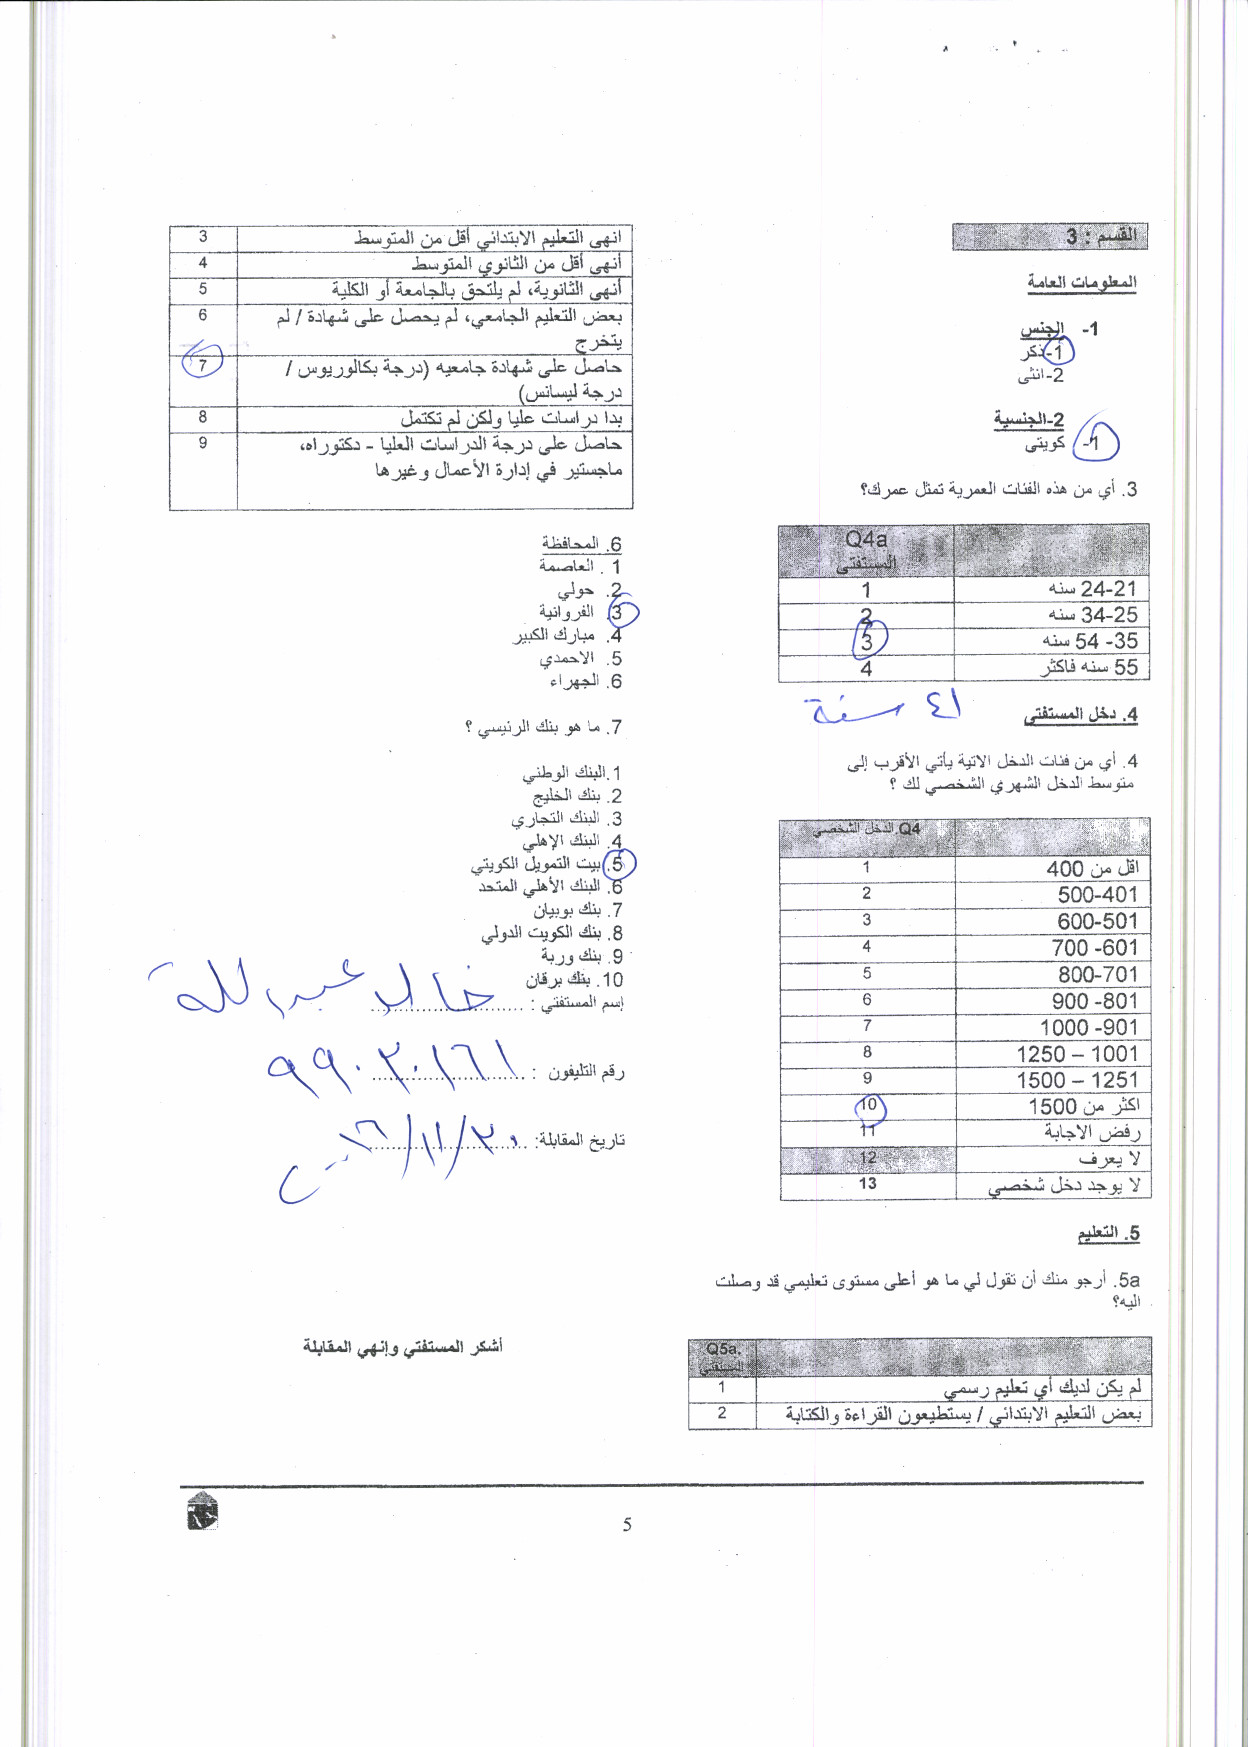 القسم : 3
المعلومات العامة
1- الجنس
1-ذكر
2-انثى
2-الجنسية
1- كويتى
3. أي من هذه الفئات العمرية تمثل عمرك؟
Q4a
المستفتى
24-21 سنه 1
34-25 سنه 2
35- 54 سنه 3
55 سنه فاكثر 4
4. دخل المستفتى
٤١ سنة
4. أي من فئات الدخل الاتية يأتي الأقرب إلى
متوسط الدخل الشهري الشخصي لك ؟
Q4.الدخل الشخصي
اقل من 400 1
500-401 2
600-501 3
700 -601 4
800-701 5
900 -801 6
1000 -901 7
1250 – 1001 8
1500 – 1251 9
اكثر من 1500 10
رفض الاجابة 11
لا يعرف 12
لا يوجد دخل شخصي 13
5. التعليم
5a. أرجو منك أن تقول لي ما هو أعلى مستوى تعليمي قد وصلت
اليه؟
Q5a.
المستفتي
لم يكن لديك أي تعليم رسمي 1
بعض التعليم الابتدائي / يستطيعون القراءة والكتابة 2
انهى التعليم الابتدائي أقل من المتوسط 3
أنهى أقل من الثانوي المتوسط 4
أنهى الثانوية، لم يلتحق بالجامعة أو الكلية 5
بعض التعليم الجامعي، لم يحصل على شهادة / لم
يتخرج 6
حاصل على شهادة جامعيه (درجة بكالوريوس /
درجة ليسانس) 7
بدا دراسات عليا ولكن لم تكتمل 8
حاصل على درجة الدراسات العليا - دكتوراه،
ماجستير في إدارة الأعمال وغيرها 9
6. المحافظة
1 . العاصمة
2. حولي
3. الفروانية
4. مبارك الكبير
5. الاحمدي
6. الجهراء
7. ما هو بنك الرئيسي ؟
1.البنك الوطني
2. بنك الخليج
3. البنك التجاري
4. البنك الإهلي
5. بيت التمويل الكويتي
6. البنك الأهلي المتحد
7. بنك بوبيان
8. بنك الكويت الدولي
9. بنك وربة
10. بنك برقان
إسم المستفتي : خالد عبدالله
رقم التليفون : ٩٩٠٢٠١٦١
تاريخ المقابلة: ٢٠/١١/١٦
أشكر المستفتي وإنهي المقابلة
5